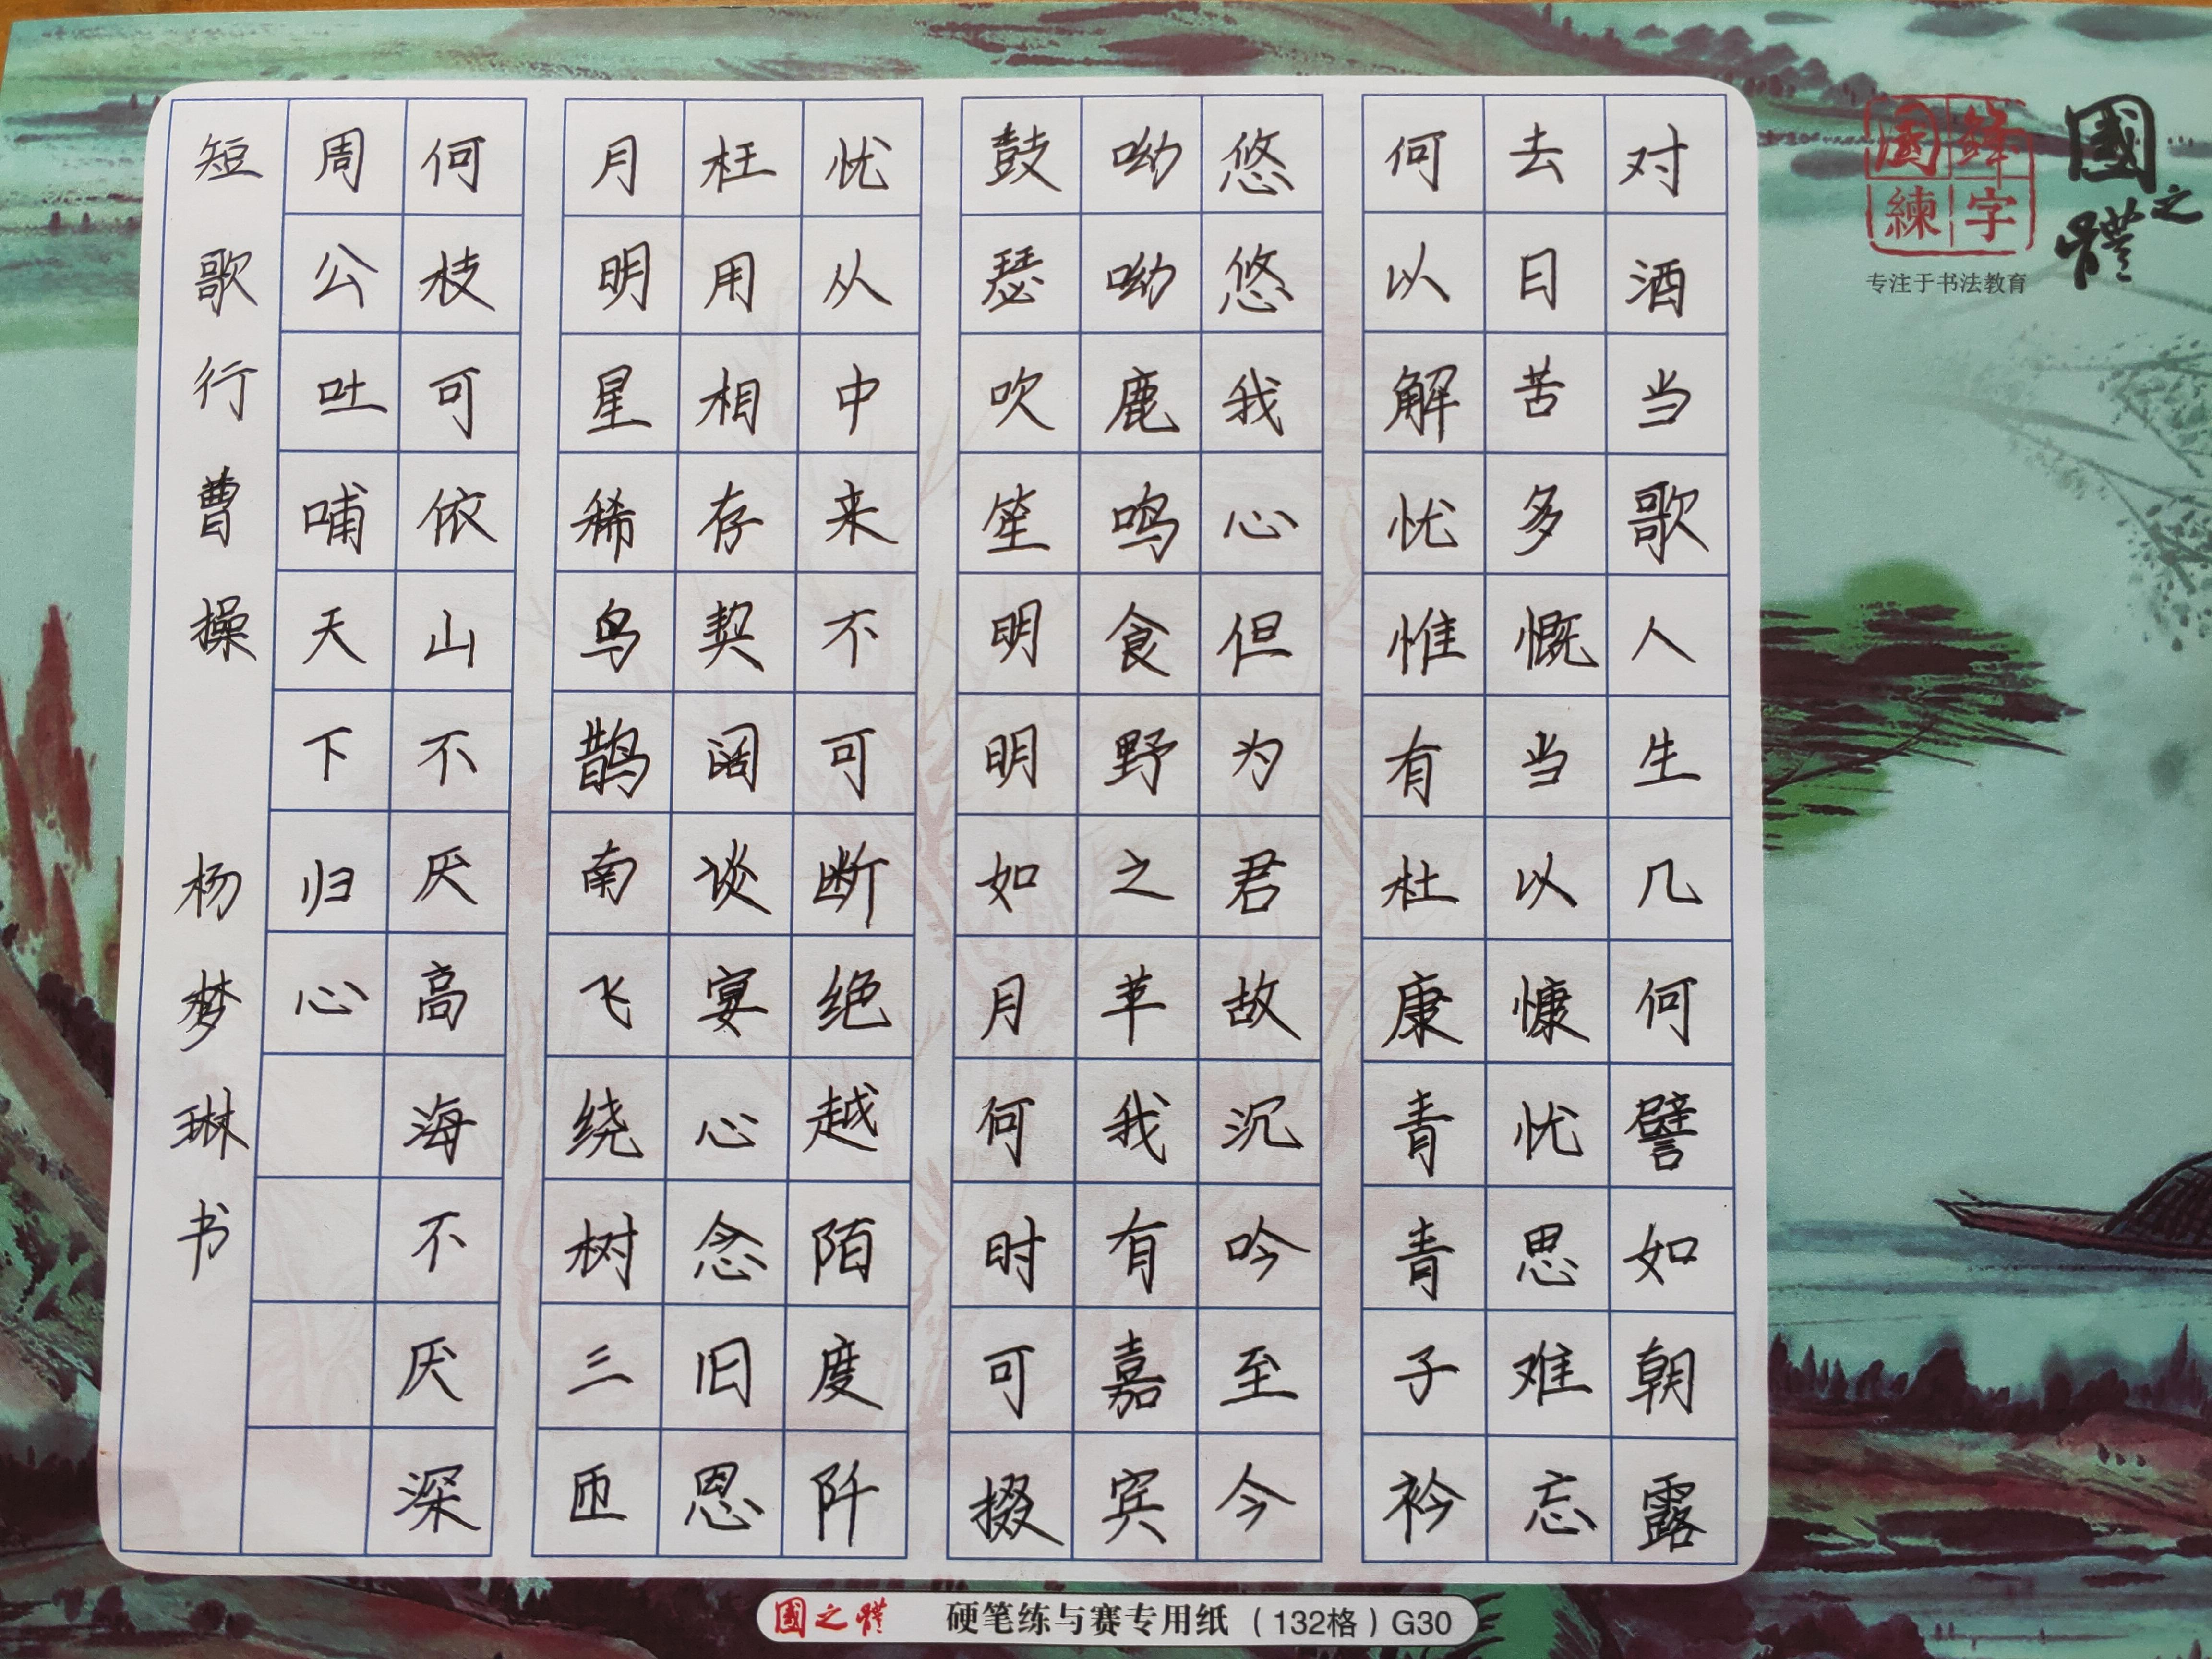 對酒当歌人生几何譬如朝露
去日苦多慨当以慷忧思难忘
何以解忧惟有杜康青青子衿
悠悠我心但为君故沉吟至今
呦呦鹿鸣食野之苹我有嘉宾
鼓瑟吹笙明明如月何时可掇
忧从中来不可断绝越陌度阡
枉用相存契阔谈宴心念旧恩
月明星稀鸟鹊南飞绕树三匝
何枝可依山不厌高海不厌深
周公吐哺天下归心
短歌行曹操 杨梦琳书
國之體
國鋒
練字
专注于书法教育
國之體 硬笔练与赛专用纸（132格）G30